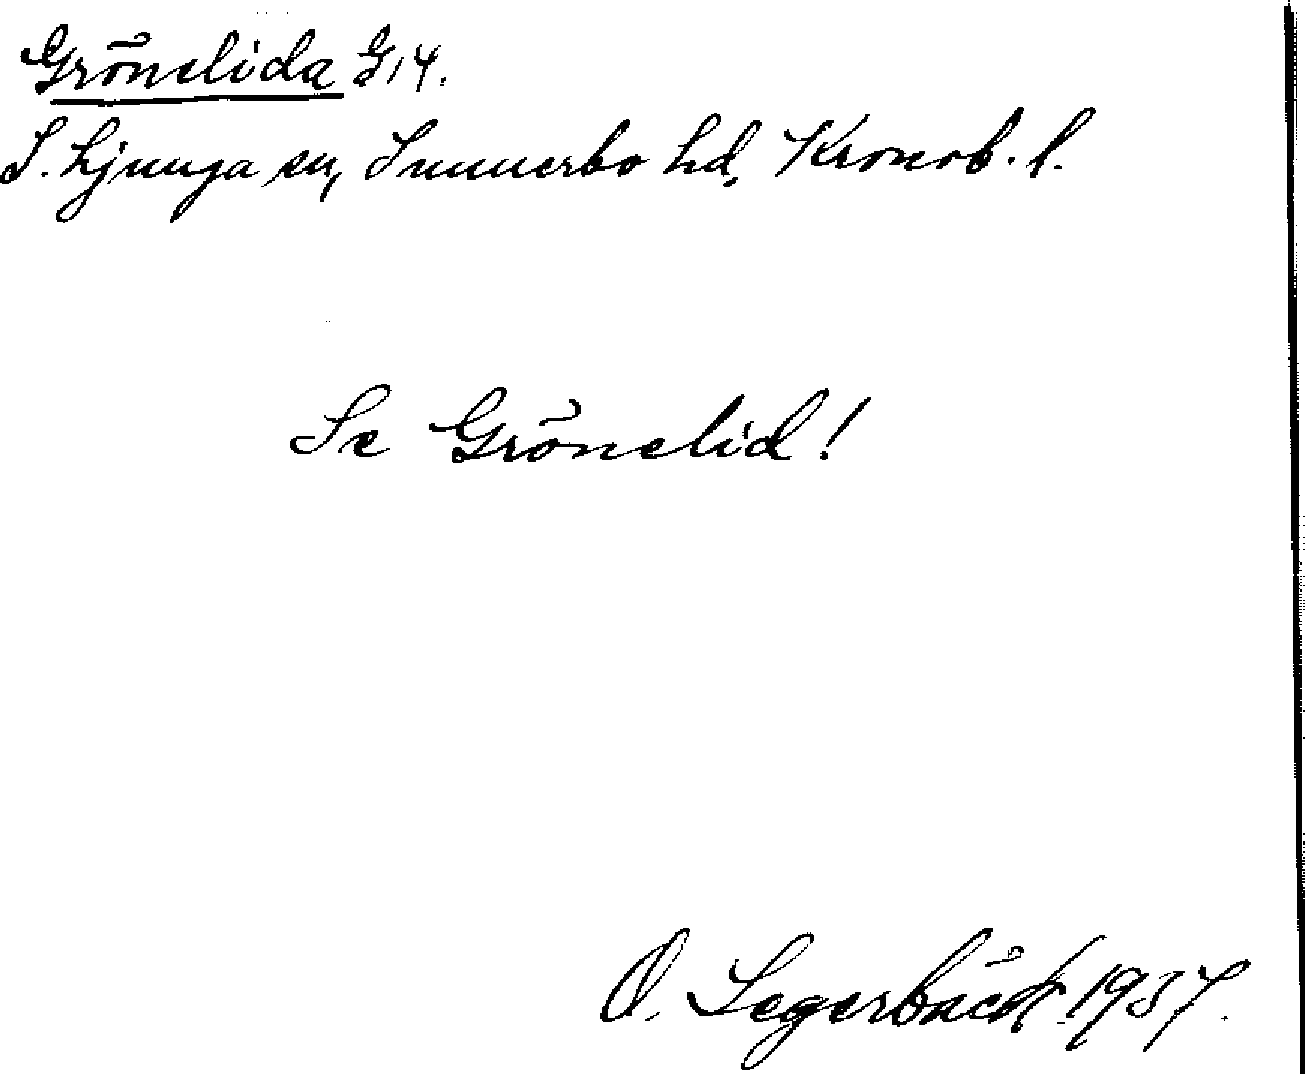 Grönelida G14.
S. Ljunga sn, Sunnerbo hd, Kronob. l.
Se Grönelid!
O. Segerbäck 1937.